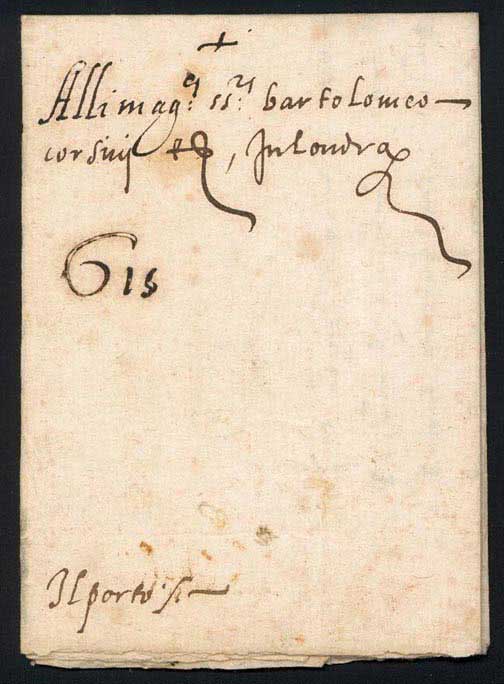 +
Alli mag.ci ss.ri bartolomeo
corsinij &, In londra
615
Il porto